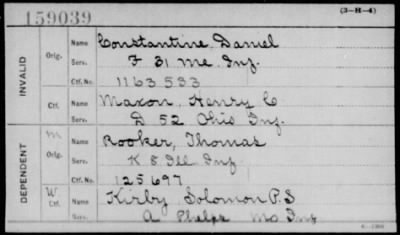 159039 (3-H-4)
INVALID
Orig. Name Constantine, Daniel
Serv. F 31 Me Inf.
Ctf. No. 1163533
Ctf. Name Maxon, Henry C
Serv. D 52 Ohio Inf.
DEPENDENT
M Orig. Name Rooker, Thomas
Serv. K 8 Ill Inf
Ctf. No. 125697
W Ctf. Name Kirby Solomon P. S
Serv. A Phelps Mo Inf